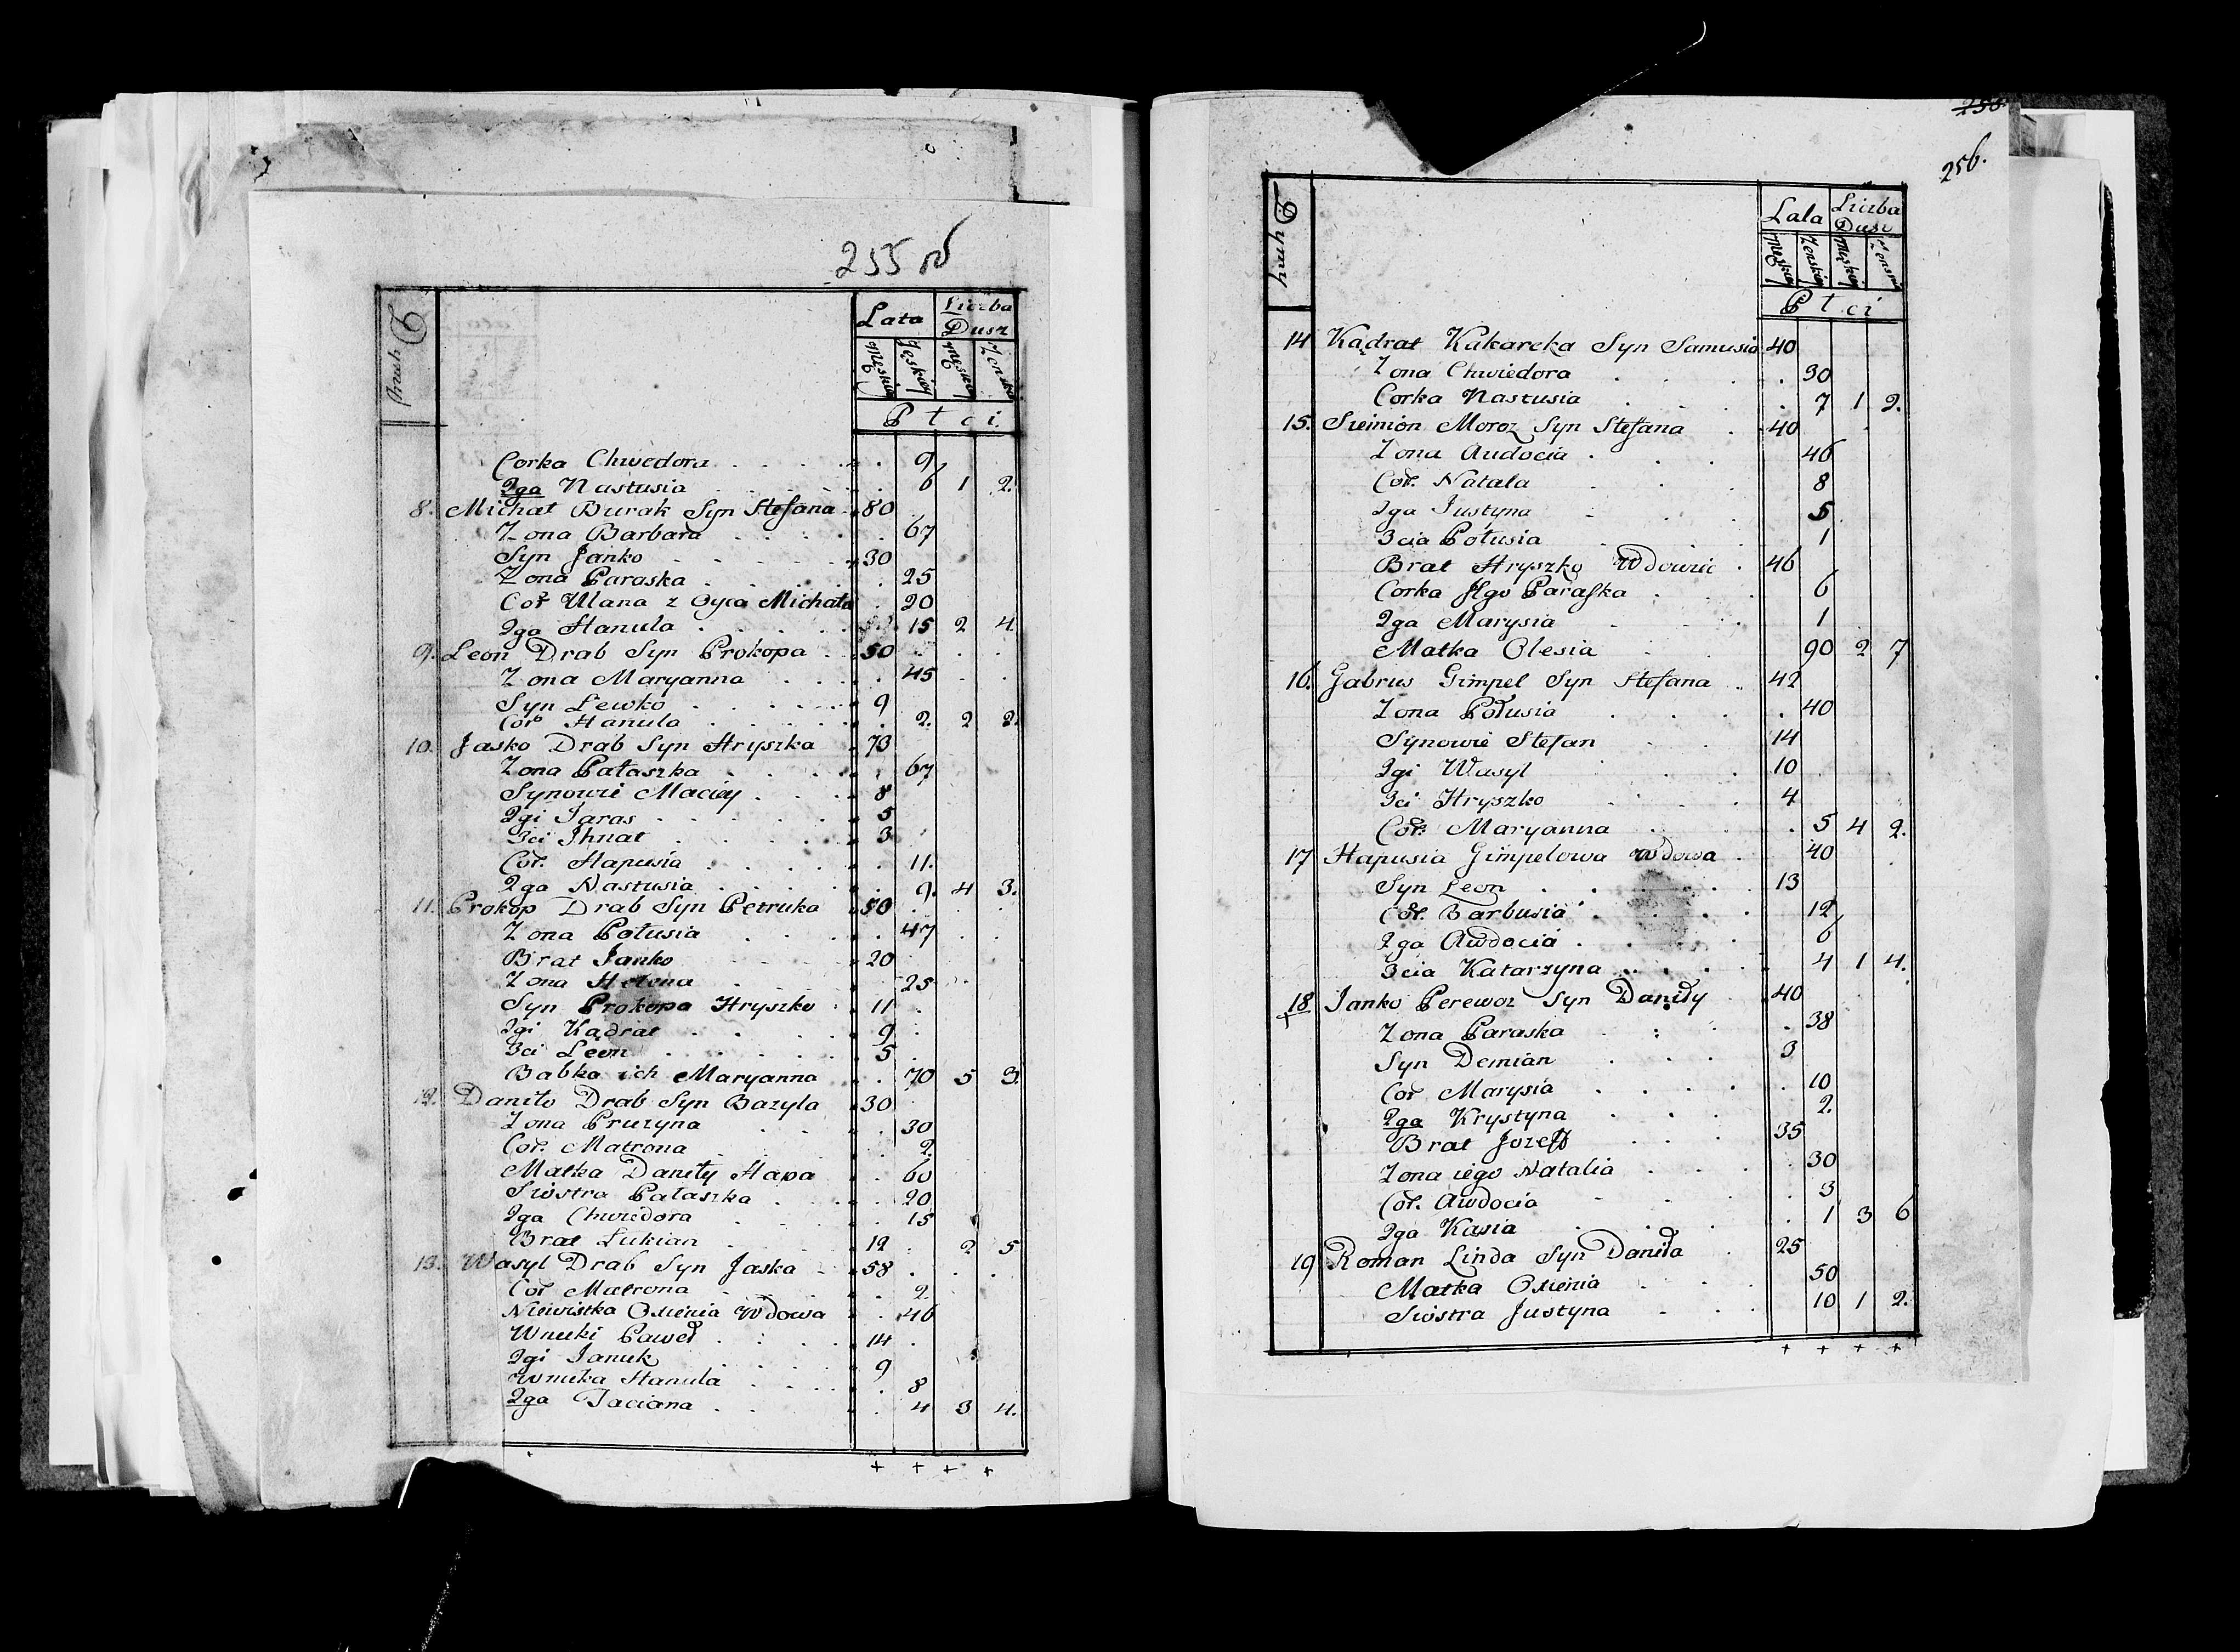 255 об
Lata Liczba Dusz
Męskiey Żeńskiey Męskiey Żeńskiey
Płci.
Corka Chwedora 9
2ga Nastusia 6 1 2.
8. Michał Burak Syn Stefana 80
Zona Barbara 67
Syn Janko 30
Zona Paraska 25
Cor Ulana z Oyca Michała 20
2ga Hanula 15 2 4.
9. Leon Drab Syn Prokopa 50
Zona Maryanna 45
Syn Lewko 9
Cor Hanula 2. 2 2.
10. Jasko Drab Syn Hryszka 73
Zona Pałaszka 67
Synowie Maciey 8
2gi Taras 5
3ci Jhnat 3
Cor. Hapusia 11.
2ga Nastusia 9. 4 3.
11. Prokop Drab Syn Petruka 50
Zona Połusia 47
Brat Janko 20
Zona Helena 25
Syn Prokopa Hryszko 11
2gi Kądrat 9
3ci Leon 5
Babka ich Maryanna 70 5 3.
12. Daniło Drab Syn Bazyla 30
Zona Pruzyna 30
Cor. Matrona 2.
Matka Daniły Hapa 60
Siostra Pałaszka 20
2ga Chwiedora 15
Brat Łukian 12 2 5
13. Wasyl Drab Syn Jaska 58
Cor Matrona 2
Niewistka Oxienia Wdowa 46
Wnuki Paweł 14
2gi Januk 9
Wnuka Hanula 8
2ga Taciana 4 3 4.
+ + + +
256.
Lata Liczba Dusz
Męskiey Żeńskiey Męskiey Żeńskiey
Płci
14 Kądrat Kakareka Syn Samusia 40
Zona Chwiedora 30
Corka Nastusia 7 1 2.
15. Siemion Moroz Syn Stefana 40
Zona Audocia 46
Cor. Natala 8
2ga Justyna 5
3cia Połusia 1
Brat Hryszko Wdowiec 46
Corka Jego Paraska 6
2ga Marysia 1
Matka Olesia 90 2 7
16. Gabrus Gimpel Syn Stefana 42
Zona Połusia 40
Synowie Stefan 14
2gi Wasyl 10
3ci Hryszko 4
Cor. Maryanna 5 4 2.
17 Hapusia Gimpelowa wdowa 40
Syn Leon 13
Cor. Barbusia 12
2ga Awdocia 6
3cia Katarzyna 4 1 4.
18 Janko Perewoz Syn Daniły 40
Zona Paraska 38
Syn Demian 3
Cor Marysia 10
2ga Krystyna 2.
Brat Jozeff 35
Zona iego Natalia 30
Cor. Awdocia 3
2ga Kasia 1 3 6
19 Roman Linda Syn Daniła 25
Matka Oxienia 50
Siostra Justyna 10 1 2.
+ + + +